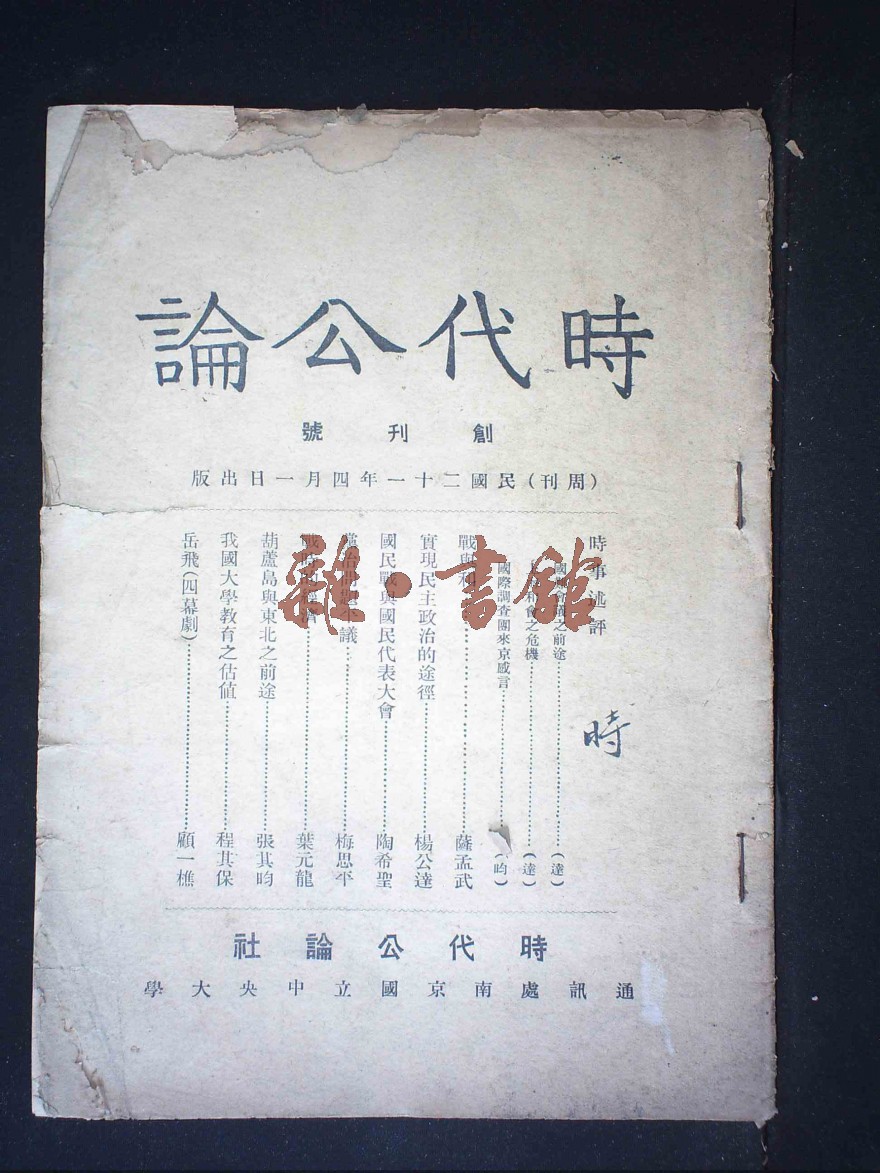 時代公論
創刊號
(周刊)民國二十一年四月一日出版
時事述評
國難會議之前途……(達)
之危機……(達)
國際調查團來京感言……(昀)
戰與和……薩孟武
實現民主政治的途徑……楊公達
國民戰與國民代表大會……陶希聖
議……梅思平
葉元龍
葫蘆島與東北之前途……張其昀
我國大學教育之估值……程其保
岳飛(四幕劇)……顧一樵
時
時代公論社
通訊處南京國立中央大學
雜·書館